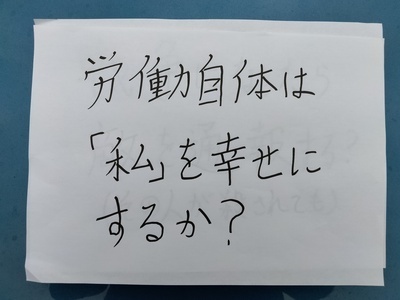 労働自体は
「私」を幸せに
するか?